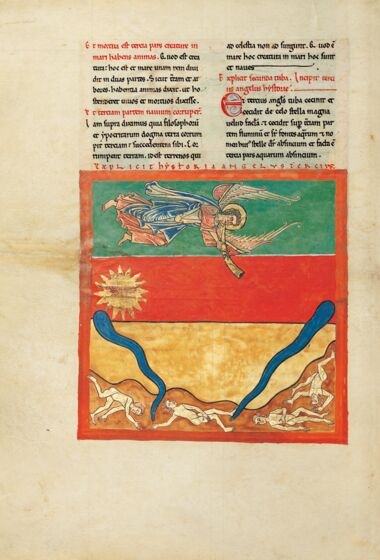 Et mortua est tercia pars creature in
mari habens animas. E. quod est crea
tura: hoc est et mare unam rem divi
dit in duas partes. Sicut terram et ar
bores. habentia animas dixit. ut os
tenderet vivos et mortuos duisse.
Et terciam partem navium corruper.
Iam supra diximus quia philosophorum
et ypocritarum dogma certa corrum
pit terciam
rumperunt terciam. id est terrenos qui
ad celestia non ad sungunt. E. quod est
mare quod creatura in mari hoc sunt
et naves
Explicit secunda tuba. Incipit terci
us angelus hystorie.
Et tercius angelus tuba cecinit et
cecidit de celo stella magna
velud facula. et cecidit sup terciam par
tem fluminum et super fontes aquarum et no
men huius stelle dicitur absincium et facta est
tercia pars aquarum absincium.
EXPLICIT HYSTORIA ANGELUS TERCIUS